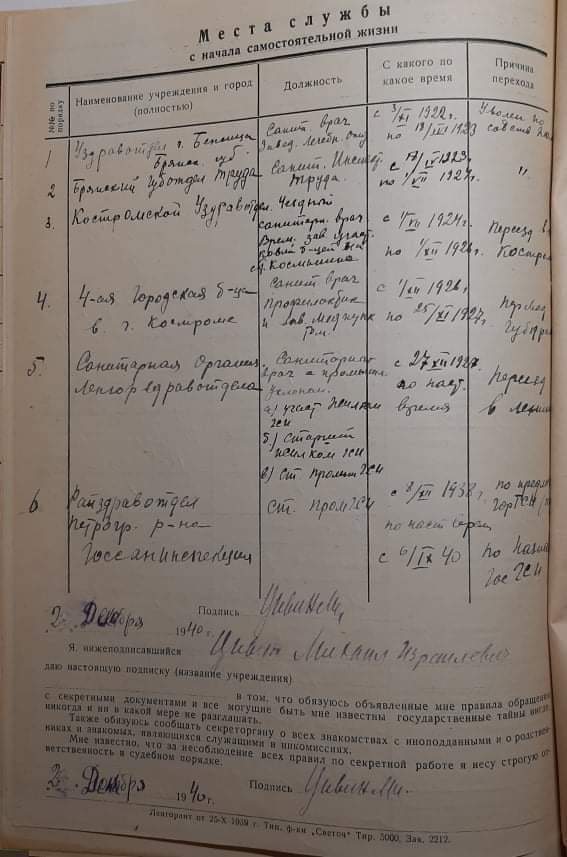 Места службы
с начала самостоятельной жизни
№№ по порядку
Наименование учреждения и город (полностью)
Должность
С какого по какое время
Причина перехода
1 Уздравотдел г. Бежицы
Брянск. губ.
Санит. врач
Завед. Лечебн. Отд
с 3/XI 1922 г.
по 1923
Уволен по
собств
2 Брянский Губотдел Труда
Санит. Инспект.
Труда.
с 1923 г.
по 1/VII 1924 г.
"
3. Костромской Уздравотдел.
Уездный
санитарн. врач
Врем. зав. участ
ковой б-цей
с. Космынино
с 1/VII 1924 г.
по 1/VII 1926 г.
Переезд в
Костром
4. 4-ая Городская б-ца
в г. Костроме
Санит. врач
Профилактик
и зав. Медпунк
том.
с 1/VII 1926 г.
по 25/XI 1927 г.
Перевод
Губздра
5. Санитарная Организ
Ленгорздравотдела
Санитарный
врач с промышл
уклоном.
а) участ жилком
ГСИ
б) старший
жилком ГСИ
в) ст промыт ГСИ
с 27 XII 1927.
по наст.
время
Переезд
в Ленин
6 Райздравотдел
Петрогр. р-на
ст. пром ГСИ
с 8/XII 1938 г.
по наст время
по предл
гор ГСИ
Госсанинспекция
с 6/IX 40
по Назнач
Гос ГСИ
2 Декабря 1940 г.
Подпись Цивин М.И.
Я, нижеподписавшийся Цивин Михаил Израилевич
даю настоящую подписку (название учреждения)
в том, что обязуюсь объявленные мне правила обращения
с секретными документами и все могущие быть мне известны государственные тайны нигде,
никогда и ни в какой мере не разглашать.
Также обязуюсь сообщать секреторгану о всех знакомствах с иноподданными и о родствен-
никах и знакомых, являющихся служащими в инкомиссиях.
Мне известно, что за несоблюдение всех правил по секретной работе я несу строгую от-
ветственность в судебном порядке.
2 Декабря 1940 г.
Подпись Цивин М.И.
Ленгорлит от 25-X-1939 г. Тип. ф-ки „Светоч" Тир. 5000, Зак. 2212.